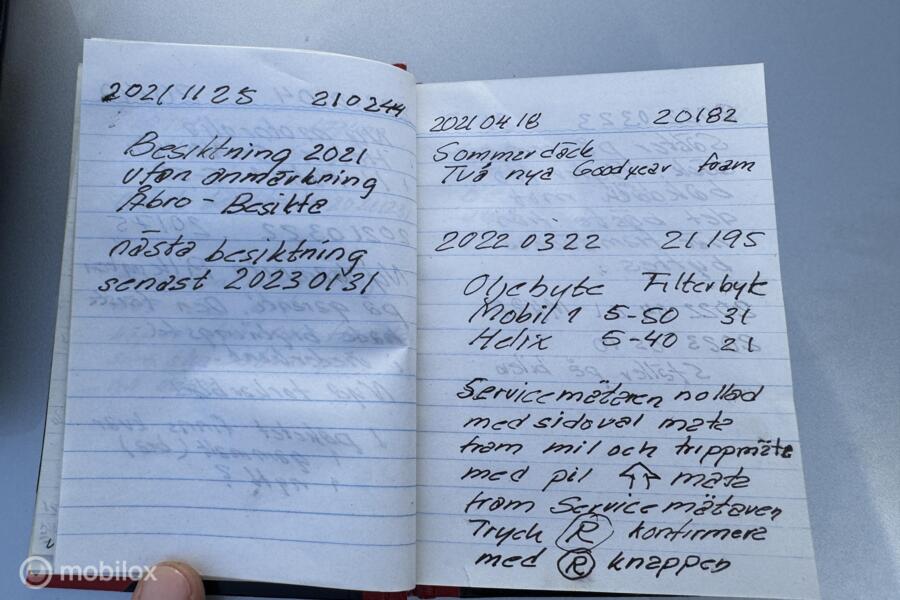 2021 11 25 210244
Besiktning 2021
utan anmärkning
Åbro - Besikta
nästa besiktning
senast 2023 01 31
2021 04 18 20182
Sommerdäck
Två nya Goodyear fram
2022 03 22 21195
Oljebyte Filterbyte
Mobil 1 5-50 3l
Helix 5-40 2l
Servicemätaren nollad
med sidoval mata
fram mil och trippmäta
med pil ⇈ mata
fram Servicemätaren
Tryck Ⓡ konfirmera
med Ⓡ knappen
mobilox